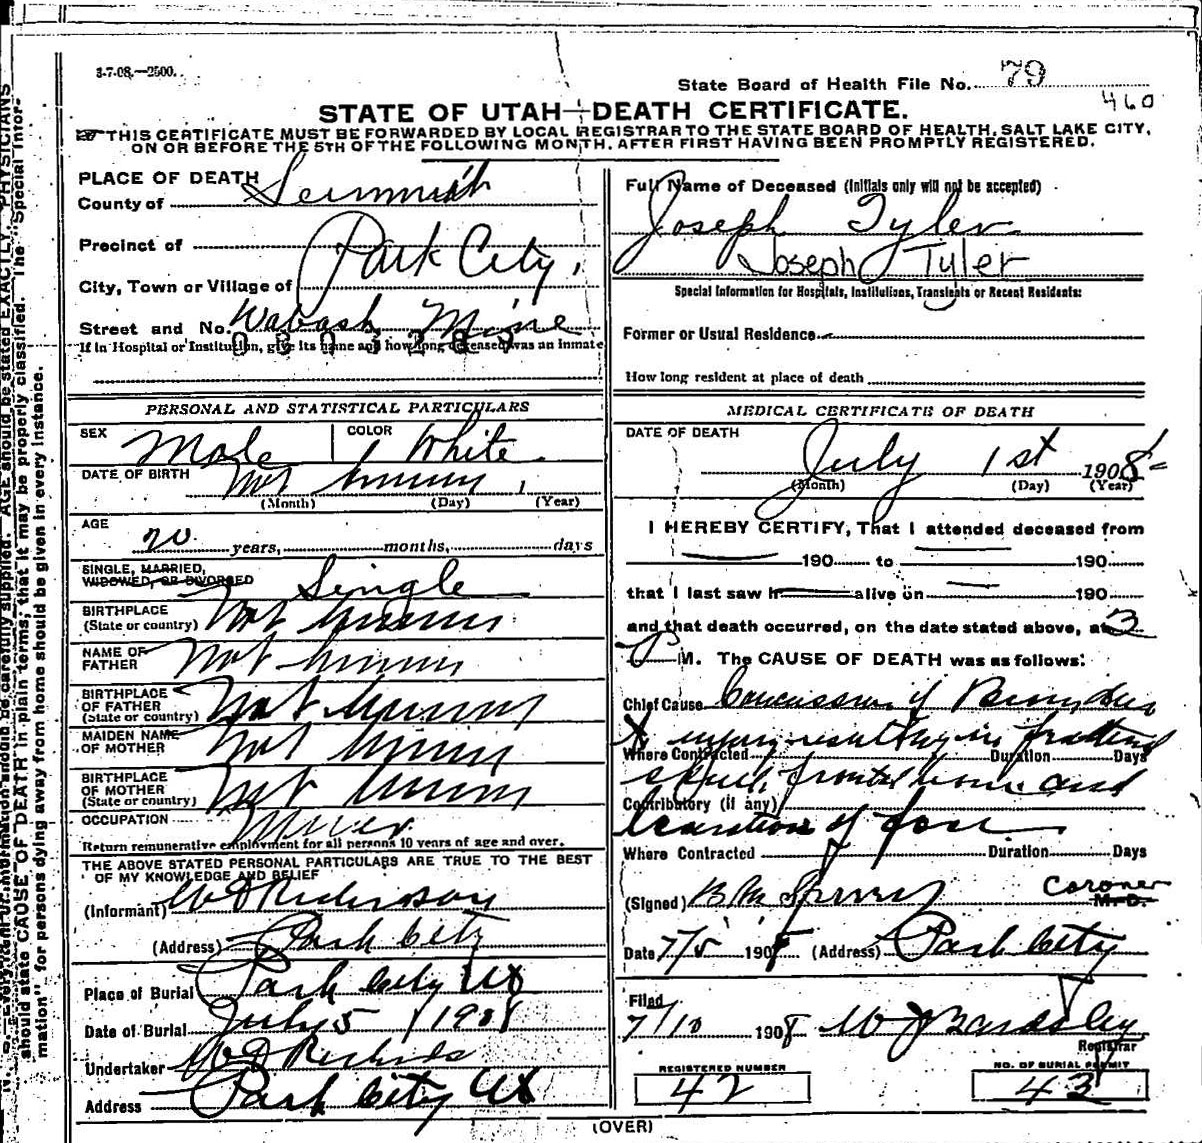 3-7-08.—2500.
State Board of Health File No. 79
460
STATE OF UTAH—DEATH CERTIFICATE.
THIS CERTIFICATE MUST BE FORWARDED BY LOCAL REGISTRAR TO THE STATE BOARD OF HEALTH, SALT LAKE CITY,
ON OR BEFORE THE 5TH OF THE FOLLOWING MONTH, AFTER FIRST HAVING BEEN PROMPTLY REGISTERED.
PLACE OF DEATH
County of Summit
Precinct of
Park City,
City, Town or Village of
Street and No. Wabash Mine
If in Hospital or Institution, give its name and how long deceased was an inmate
PERSONAL AND STATISTICAL PARTICULARS
SEX Male COLOR White
DATE OF BIRTH Not known
(Month) (Day) (Year)
AGE
20 years, months, days
SINGLE, MARRIED,
WIDOWED, OR DIVORCED Single
BIRTHPLACE
(State or country) Not known
NAME OF
FATHER Not known
BIRTHPLACE
OF FATHER
(State or country) Not known
MAIDEN NAME
OF MOTHER Not known
BIRTHPLACE
OF MOTHER
(State or country) Not known
OCCUPATION Miner
Return remunerative employment for all persons 10 years of age and over.
THE ABOVE STATED PERSONAL PARTICULARS ARE TRUE TO THE BEST
OF MY KNOWLEDGE AND BELIEF
(Informant)
(Address) Park City
Place of Burial Park City Ut
Date of Burial July 5 1908
Undertaker
Address Park City Ut
Full Name of Deceased (Initials only will not be accepted)
Joseph Tyler
Joseph Tyler
Special Information for Hospitals, Institutions, Transients or Recent Residents:
Former or Usual Residence
How long resident at place of death
MEDICAL CERTIFICATE OF DEATH
DATE OF DEATH
July 1st 1908
(Month) (Day) (Year)
I HEREBY CERTIFY, That I attended deceased from
190 to 190
that I last saw h alive on 190
and that death occurred, on the date stated above, at 3
P M. The CAUSE OF DEATH was as follows:
Chief Cause Concussion of Brain
injury resulting in fractured
Where Contracted Duration Days
skull, frontal bone and
Contributory (if any)
laceration of face
Where Contracted Duration Days
(Signed) Coroner
M. D.
Date 7/5 1908 (Address) Park City
Filed
7/10 1908
Registrar
REGISTERED NUMBER
42
NO. OF BURIAL PERMIT
43
(OVER)
should state CAUSE OF DEATH in plain terms, that it may be properly classified. The "Special Infor-
mation" for persons dying away from home should be given in every instance.